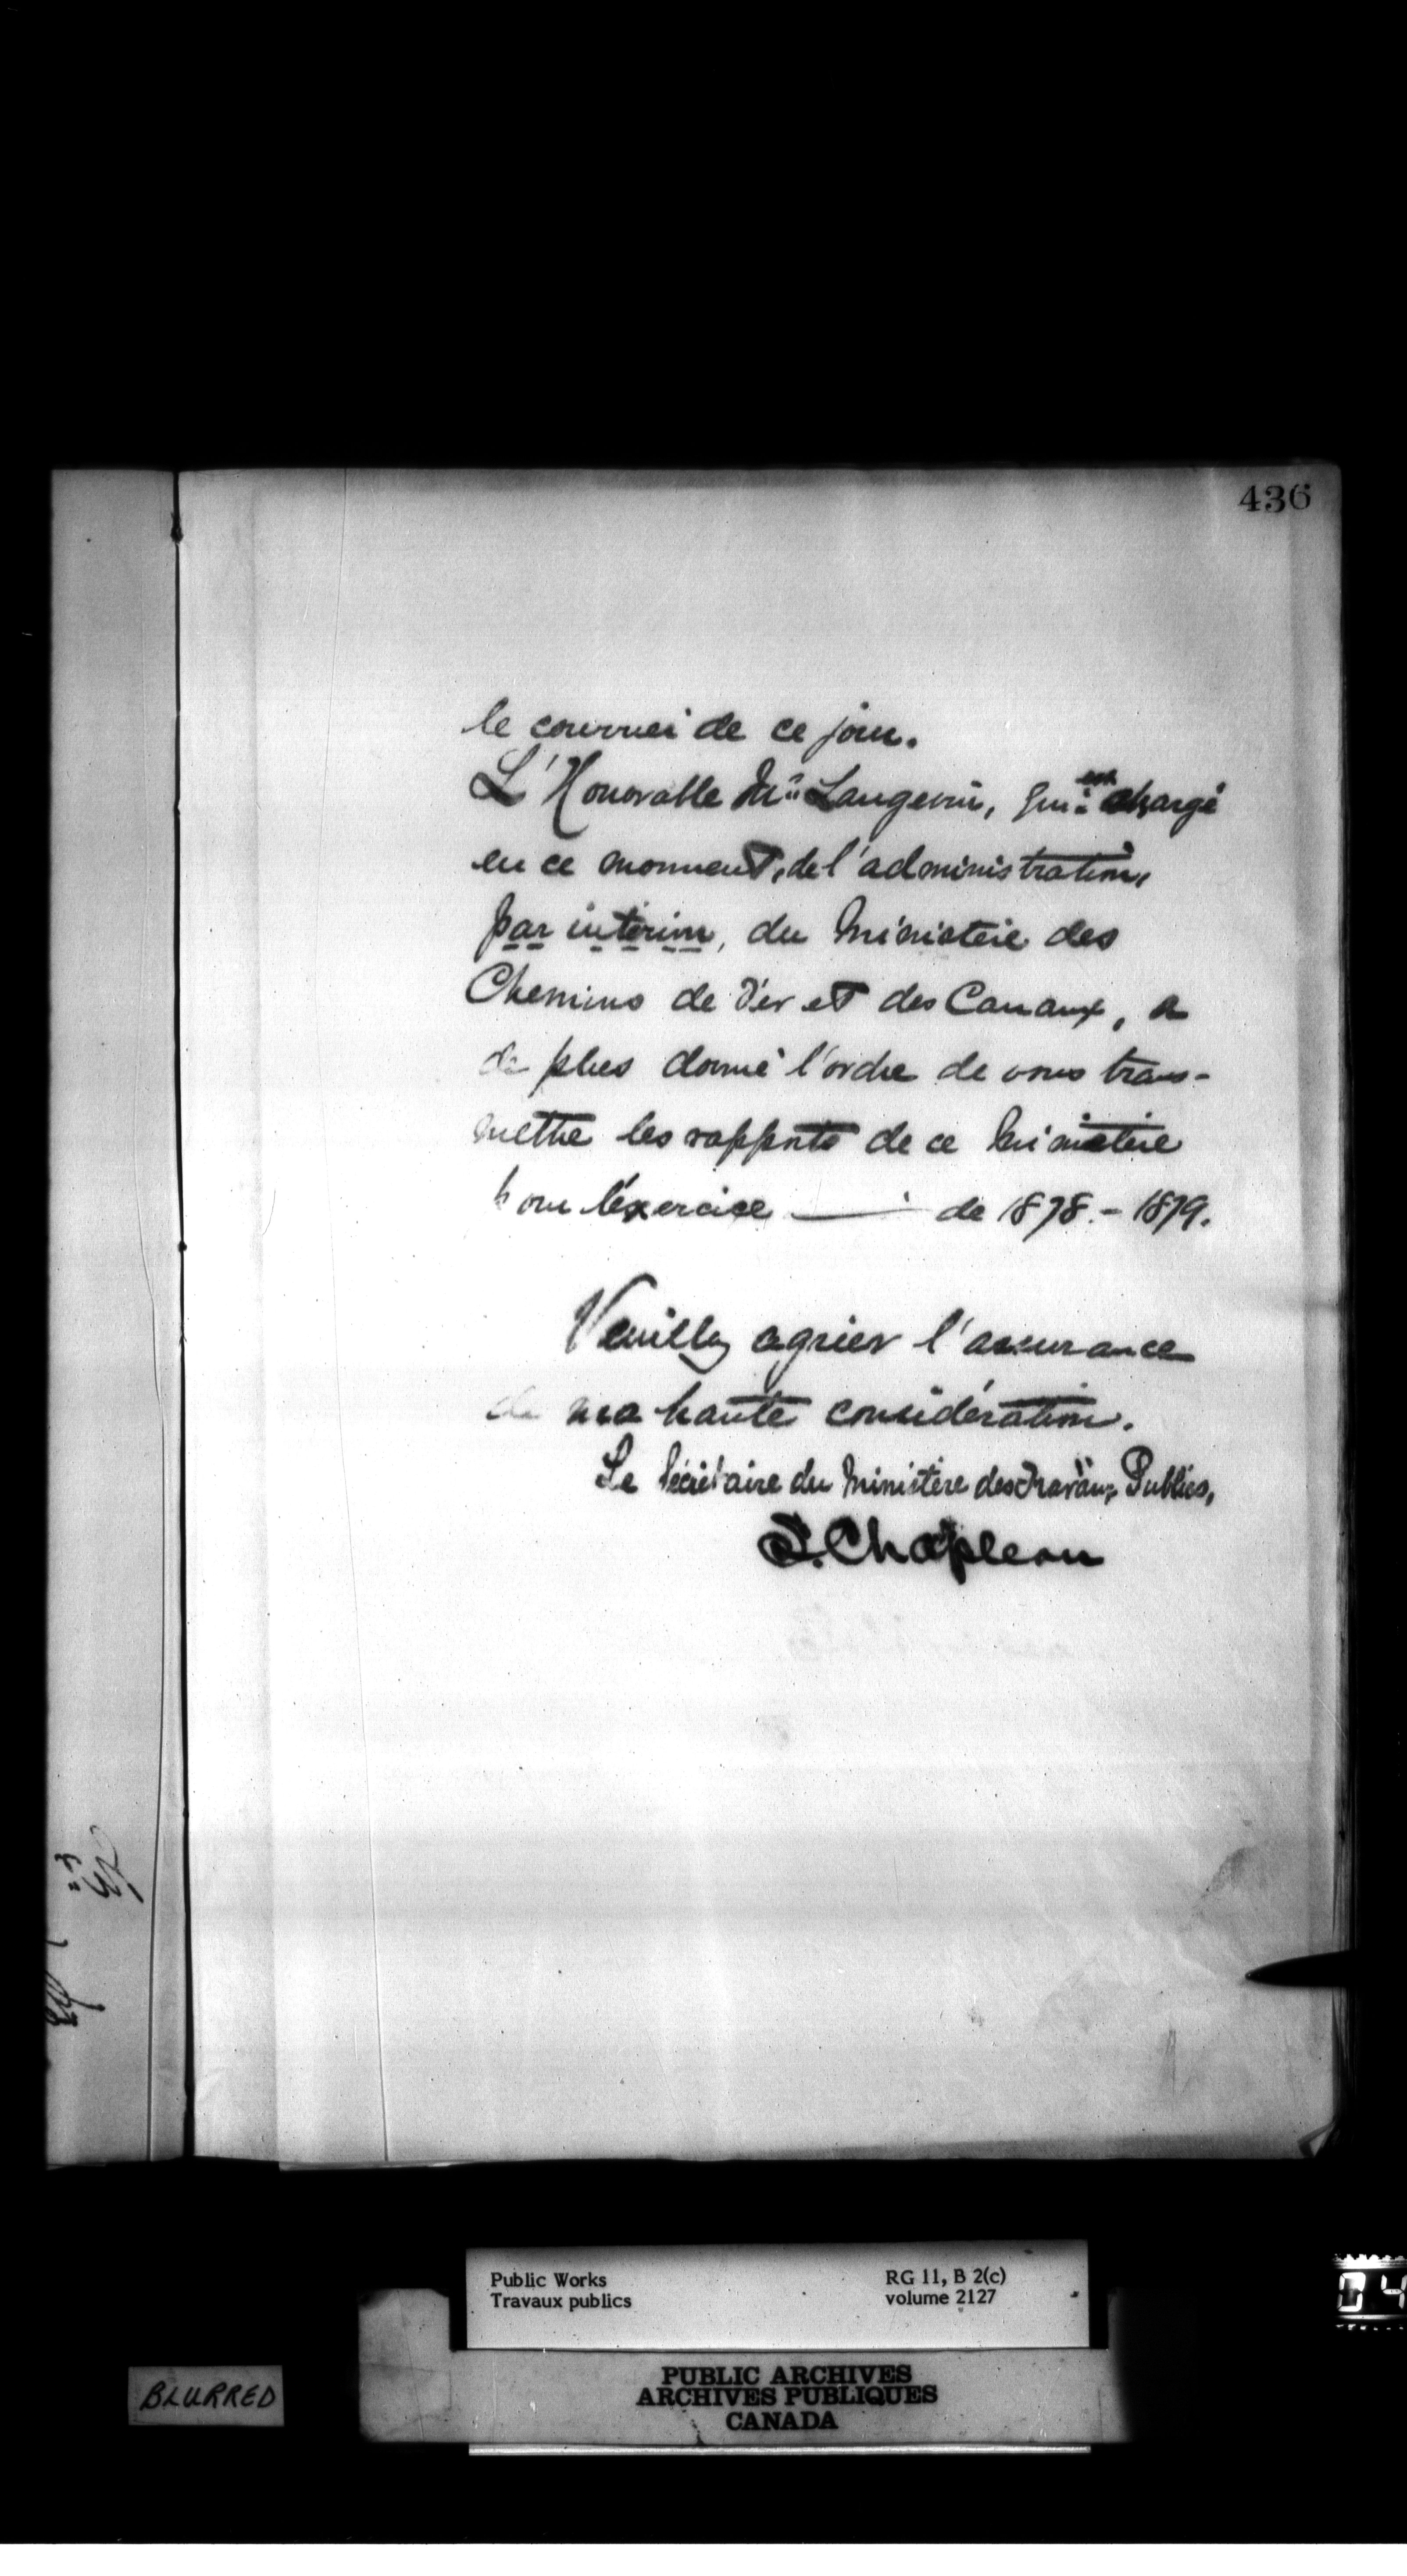 436
le courrier de ce jour.
L'Honorable Mr. Langevin, qui est chargé
en ce moment, de l'administration,
par intérim, du Ministère des
Chemins de Fer et des Canaux, a
de plus donné l'ordre de vous trans-
mettre les rapports de ce Ministère
pour l'exercice — de 1878.-1879.
Veuillez agréer l'assurance
de ma haute considération.
Le Secrétaire du Ministère des Travaux Publics,
S. Chapleau
Public Works
Travaux publics
RG 11, B 2(c)
volume 2127
BLURRED
PUBLIC ARCHIVES
ARCHIVES PUBLIQUES
CANADA